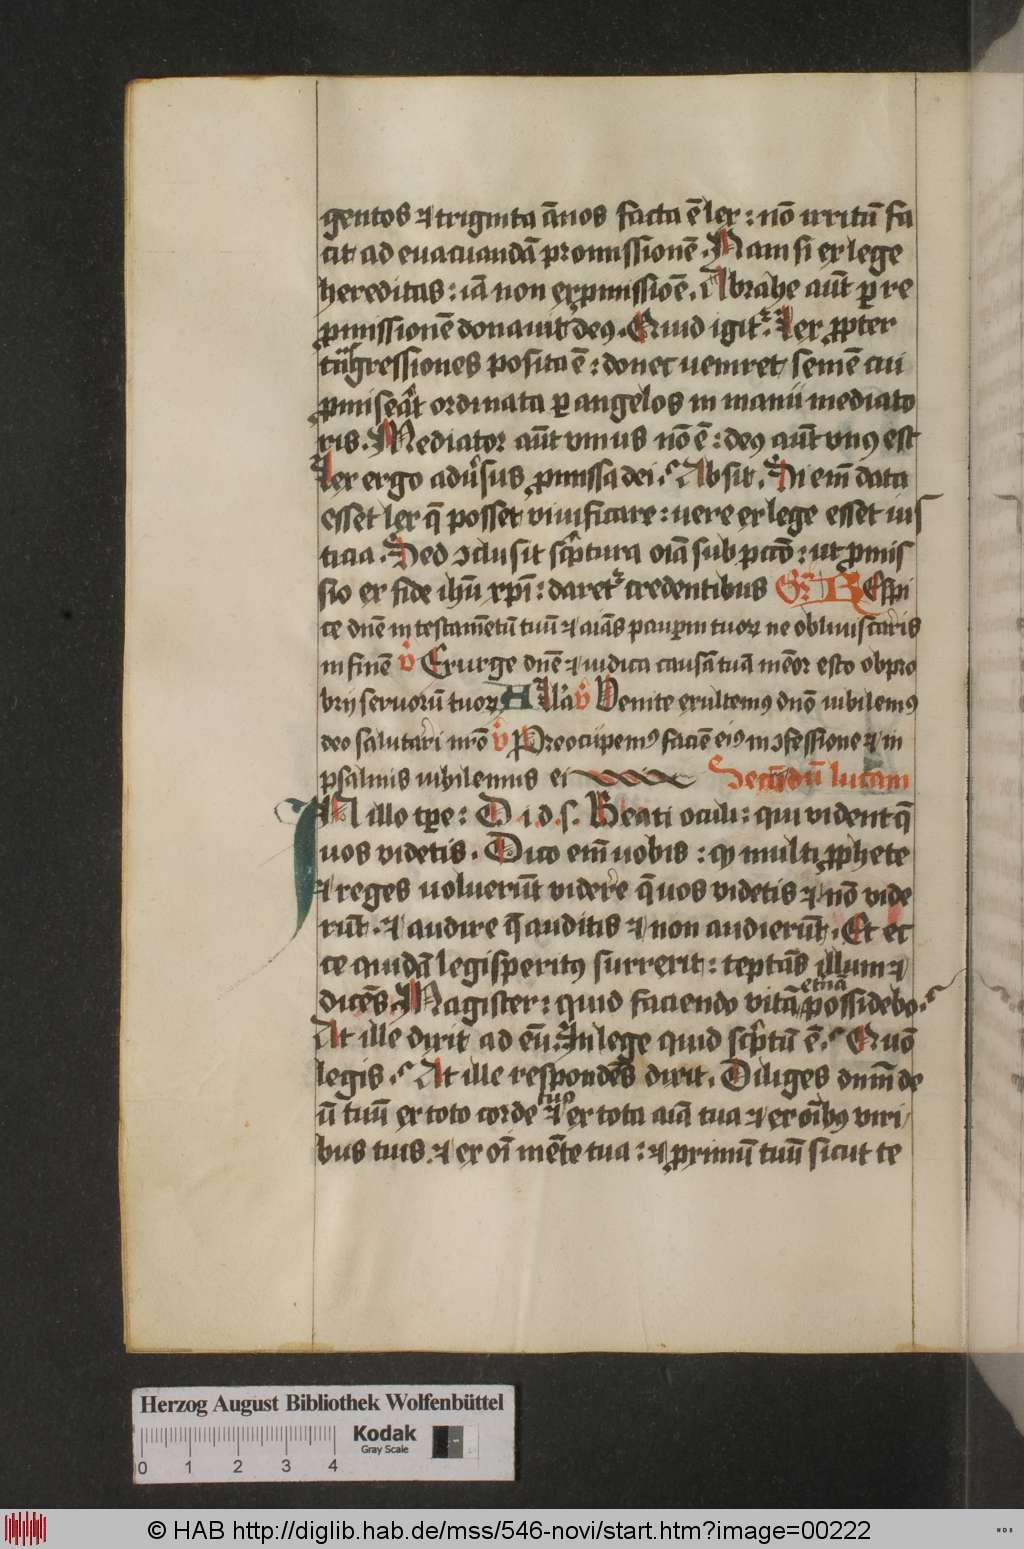 gentos ⁊ triginta ãnos facta ẽ lex : nõ irritũ fa
cit ad euacuandã promissionẽ . Nam si ex lege
hereditas : iã non ex ꝓmissiõe . Abrahe aũt ꝑ re
ꝓmissionẽ donauit deꝰ . Quid igit᷑ . Lex ꝓpter
tñsgressiones posita ẽ : donec ueniret semẽ cui
ꝓmiseãt ordinata ꝑ angelos in manu mediato
ris . Mediator aũt vnius nõ ẽ : deꝰ aũt vnꝰ est
Lex ergo adũsus ꝓmissa dei . Absit . Si em̃ data
esset lex q̃ posset viuificare : uere ex lege esset ius
ticia . Sed ꝯclusit sc̃ptura oĩa sub pctõ : ut ꝓmis
sio ex fide ihũ xpĩ : daret᷑ credentibus Gr̃ REspi
ce dnẽ in testamẽtũ tuũ ⁊ aĩas pauꝑm tuoꝝ ne obliuiscaris
in finẽ v̊ Exurge dnẽ ⁊ iudica causã tuã mẽor esto obpro
brij seruorũ tuoꝝ All'a v̊ Venite exultemꝰ dnõ iubilemꝰ
deo salutari nr̃o v̊ Preocupemꝰ faciẽ eiꝰ in ꝯfessione ⁊ in
psalmis iubilemus ei Secũdũ lucam
IN illo tꝑe : D i d . s . Beati oculi : qui vident q̃
uos videtis . Dico em̃ uobis : ꝙ multi ꝓphete
⁊ reges uoluerũt videre q̃ uos videtis ⁊ nõ vide
rũt . ⁊ audire q̃ auditis ⁊ non audierũt . Et ec
ce quidã legisperitꝰ surrexit : teptãs illum ⁊
dicẽs . Magister : quid faciendo vitã etnã possidebo .
At ille dixit ad eũ . In lege quid sc̃ptũ ẽ . Quõ
legis . At ille respondẽs dixit . Diliges dnm̃ de
ũ tuũ ex toto corde tuo ⁊ ex tota aĩa tua ⁊ ex oĩbꝰ viri
bus tuis . ⁊ ex oĩ mẽte tua : ⁊ ꝓximũ tuũ sicut te
Herzog August Bibliothek Wolfenbüttel
Kodak
Gray Scale
0 1 2 3 4
© HAB http://diglib.hab.de/mss/546-novi/start.htm?image=00222